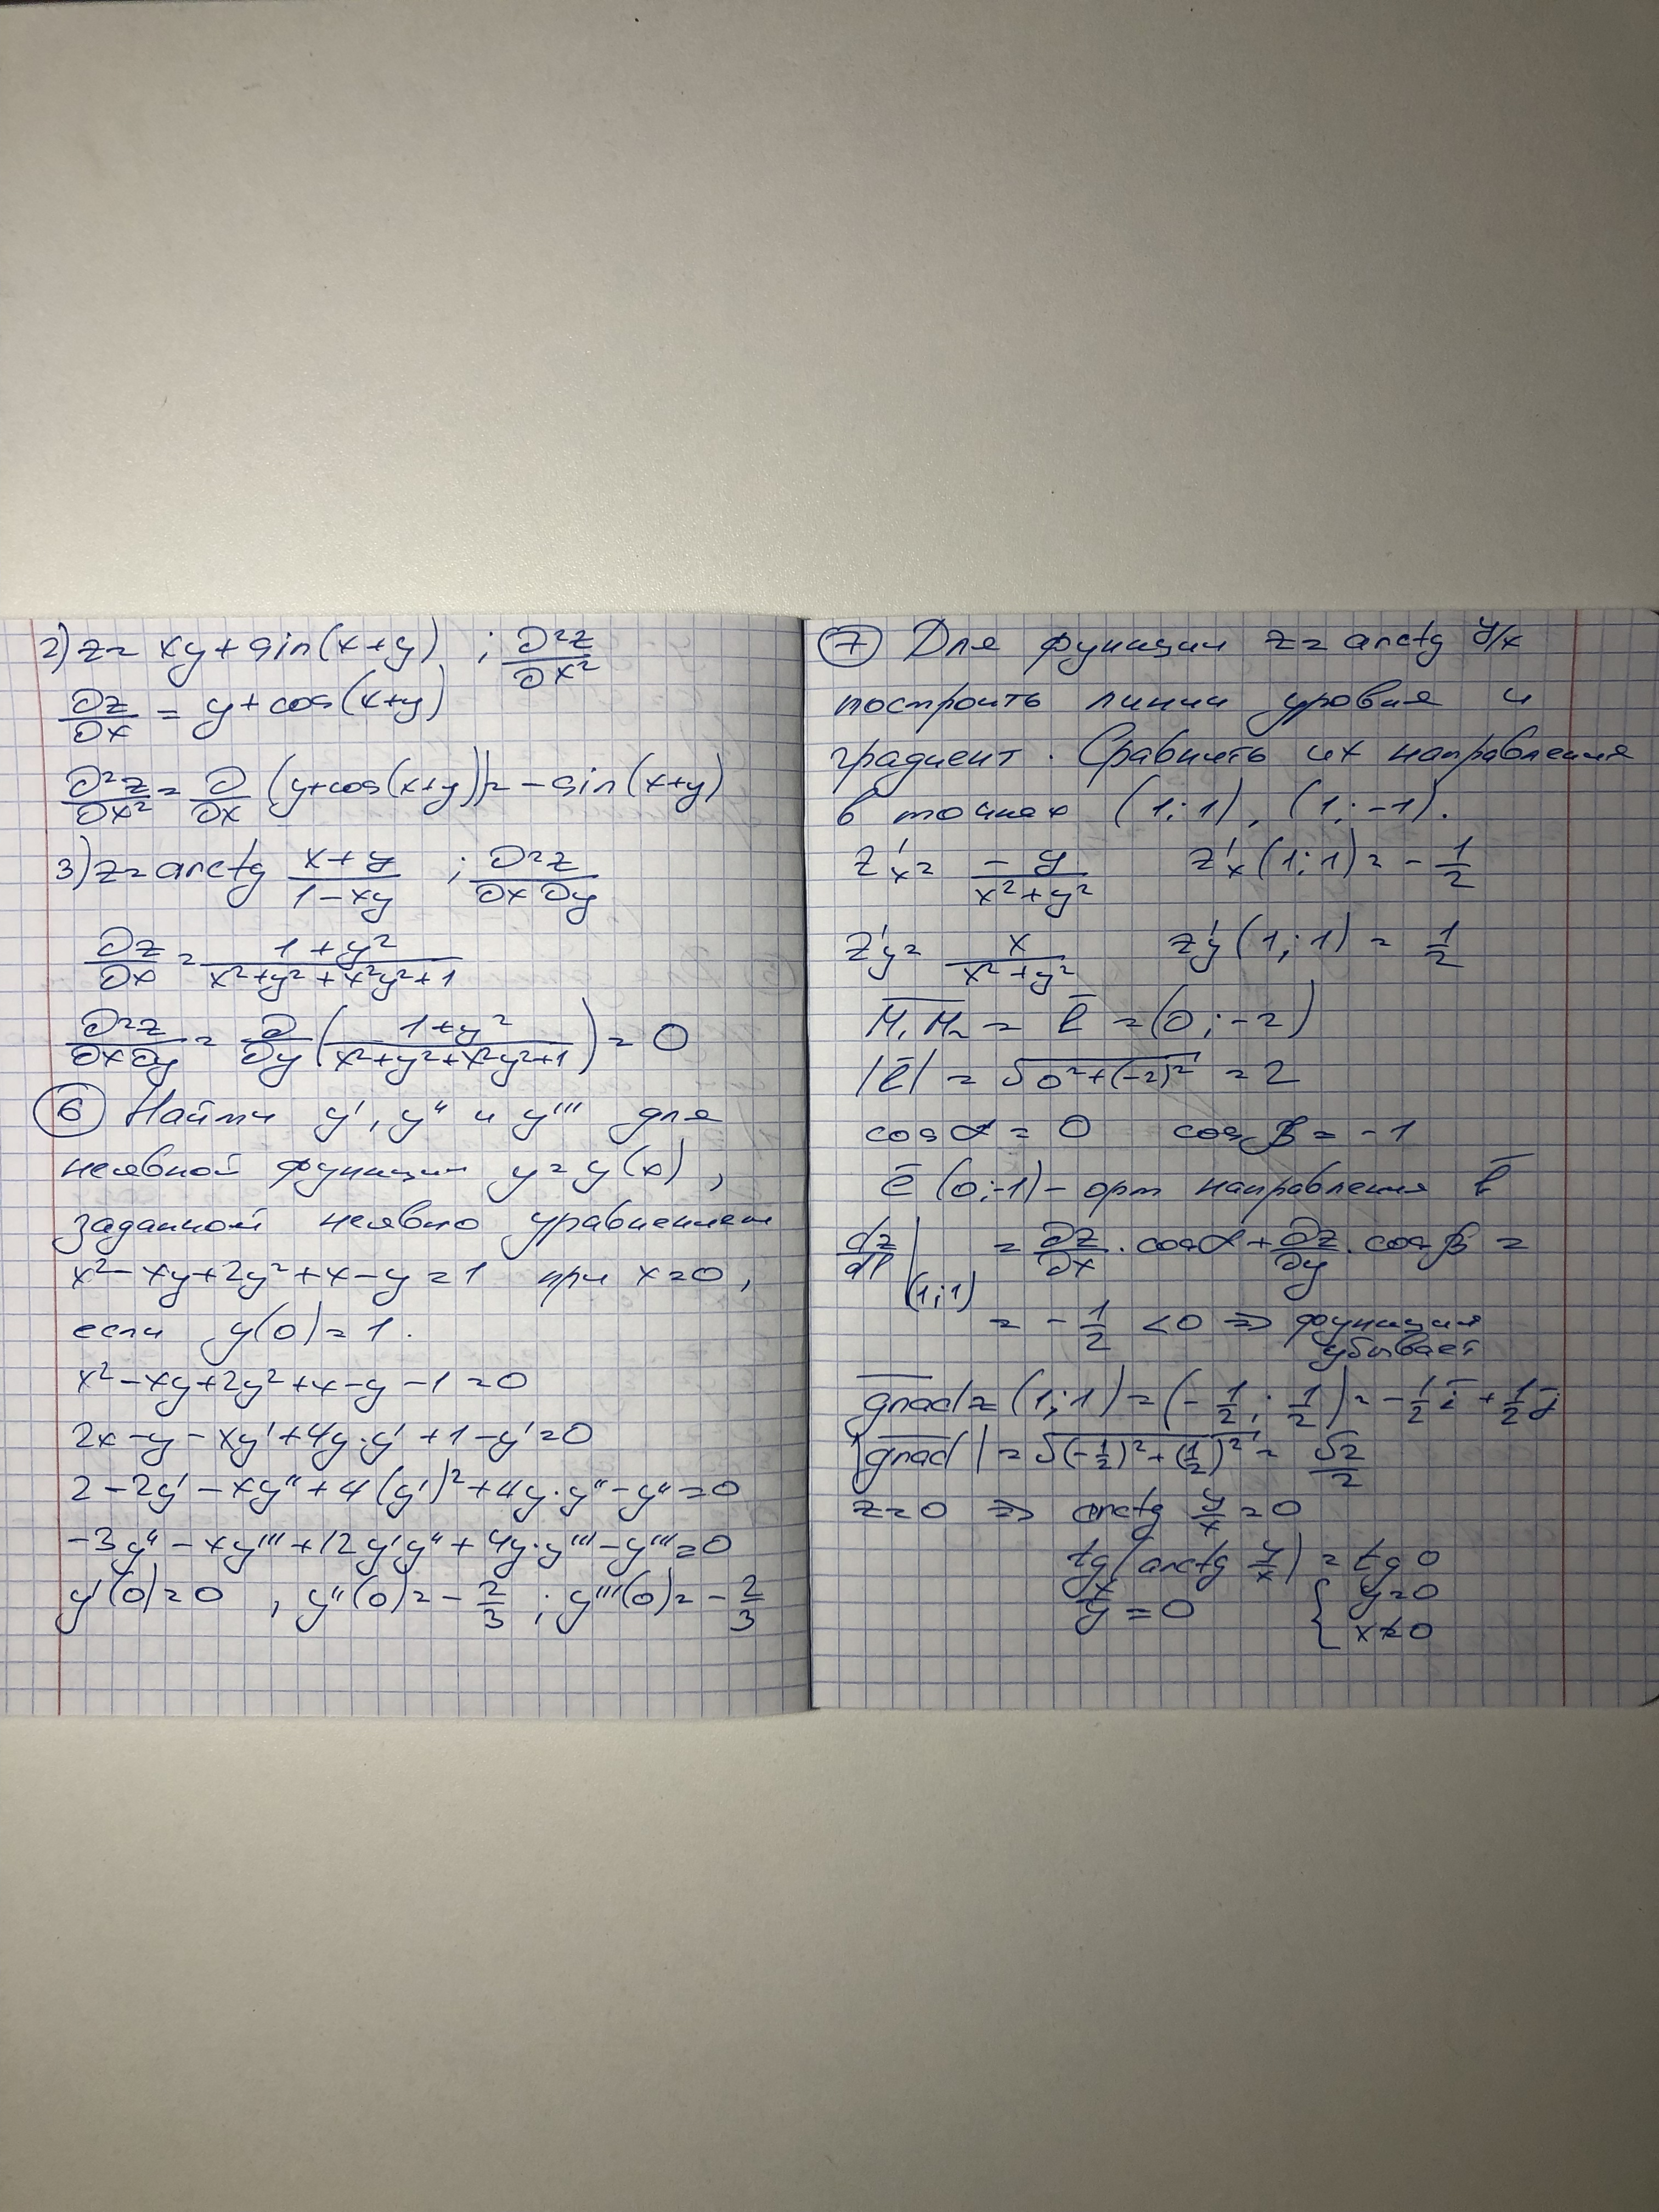 2) z = xy + sin(x+y) ; ∂²z/∂x²
∂z/∂x = y + cos(x+y)
∂²z/∂x² = ∂/∂x (y+cos(x+y)) = -sin(x+y)
3) z = arctg (x+y)/(1-xy) ; ∂²z/∂x∂y
∂z/∂x = (1+y²)/(x²+y²+x²y²+1)
∂²z/∂x∂y = ∂/∂y ((1+y²)/(x²+y²+x²y²+1)) = 0
⑥ Найти y', y'' и y''' для
неявной функции y=y(x),
заданной неявно уравнением
x²-xy+2y²+x-y=1 при x=0,
если y(0)=1.
x²-xy+2y²+x-y-1=0
2x-y-xy'+4y·y'+1-y'=0
2-2y'-xy''+4(y')²+4y·y''-y''=0
-3y''-xy'''+12y'y''+4y·y'''-y'''=0
y'(0)=0 , y''(0)=-2/3 ; y'''(0)=-2/3
⑦ Для функции z=arctg y/x
построить линии уровня и
градиент. Сравнить их направления
в точках (1;1), (1;-1).
z'x = -y/(x²+y²) z'x(1;1) = -1/2
z'y = x/(x²+y²) z'y(1;1) = 1/2
M₁M₂ = l̅ = (0;-2)
|l̅| = √(0²+(-2)²) = 2
cos α = 0 cos β = -1
e̅ (0;-1) - орт направления l̅
dz/dl |(1;1) = ∂z/∂x · cos α + ∂z/∂y · cos β =
= -1/2 <0 ⇒ функция
убывает
grad z (1;1) = (-1/2; 1/2) = -1/2 i̅ + 1/2 j̅
|grad| = √((-1/2)²+(1/2)²) = √2/2
z=0 ⇒ arctg y/x = 0
tg(arctg y/x) = tg 0
x/y = 0 { y=0
x≠0